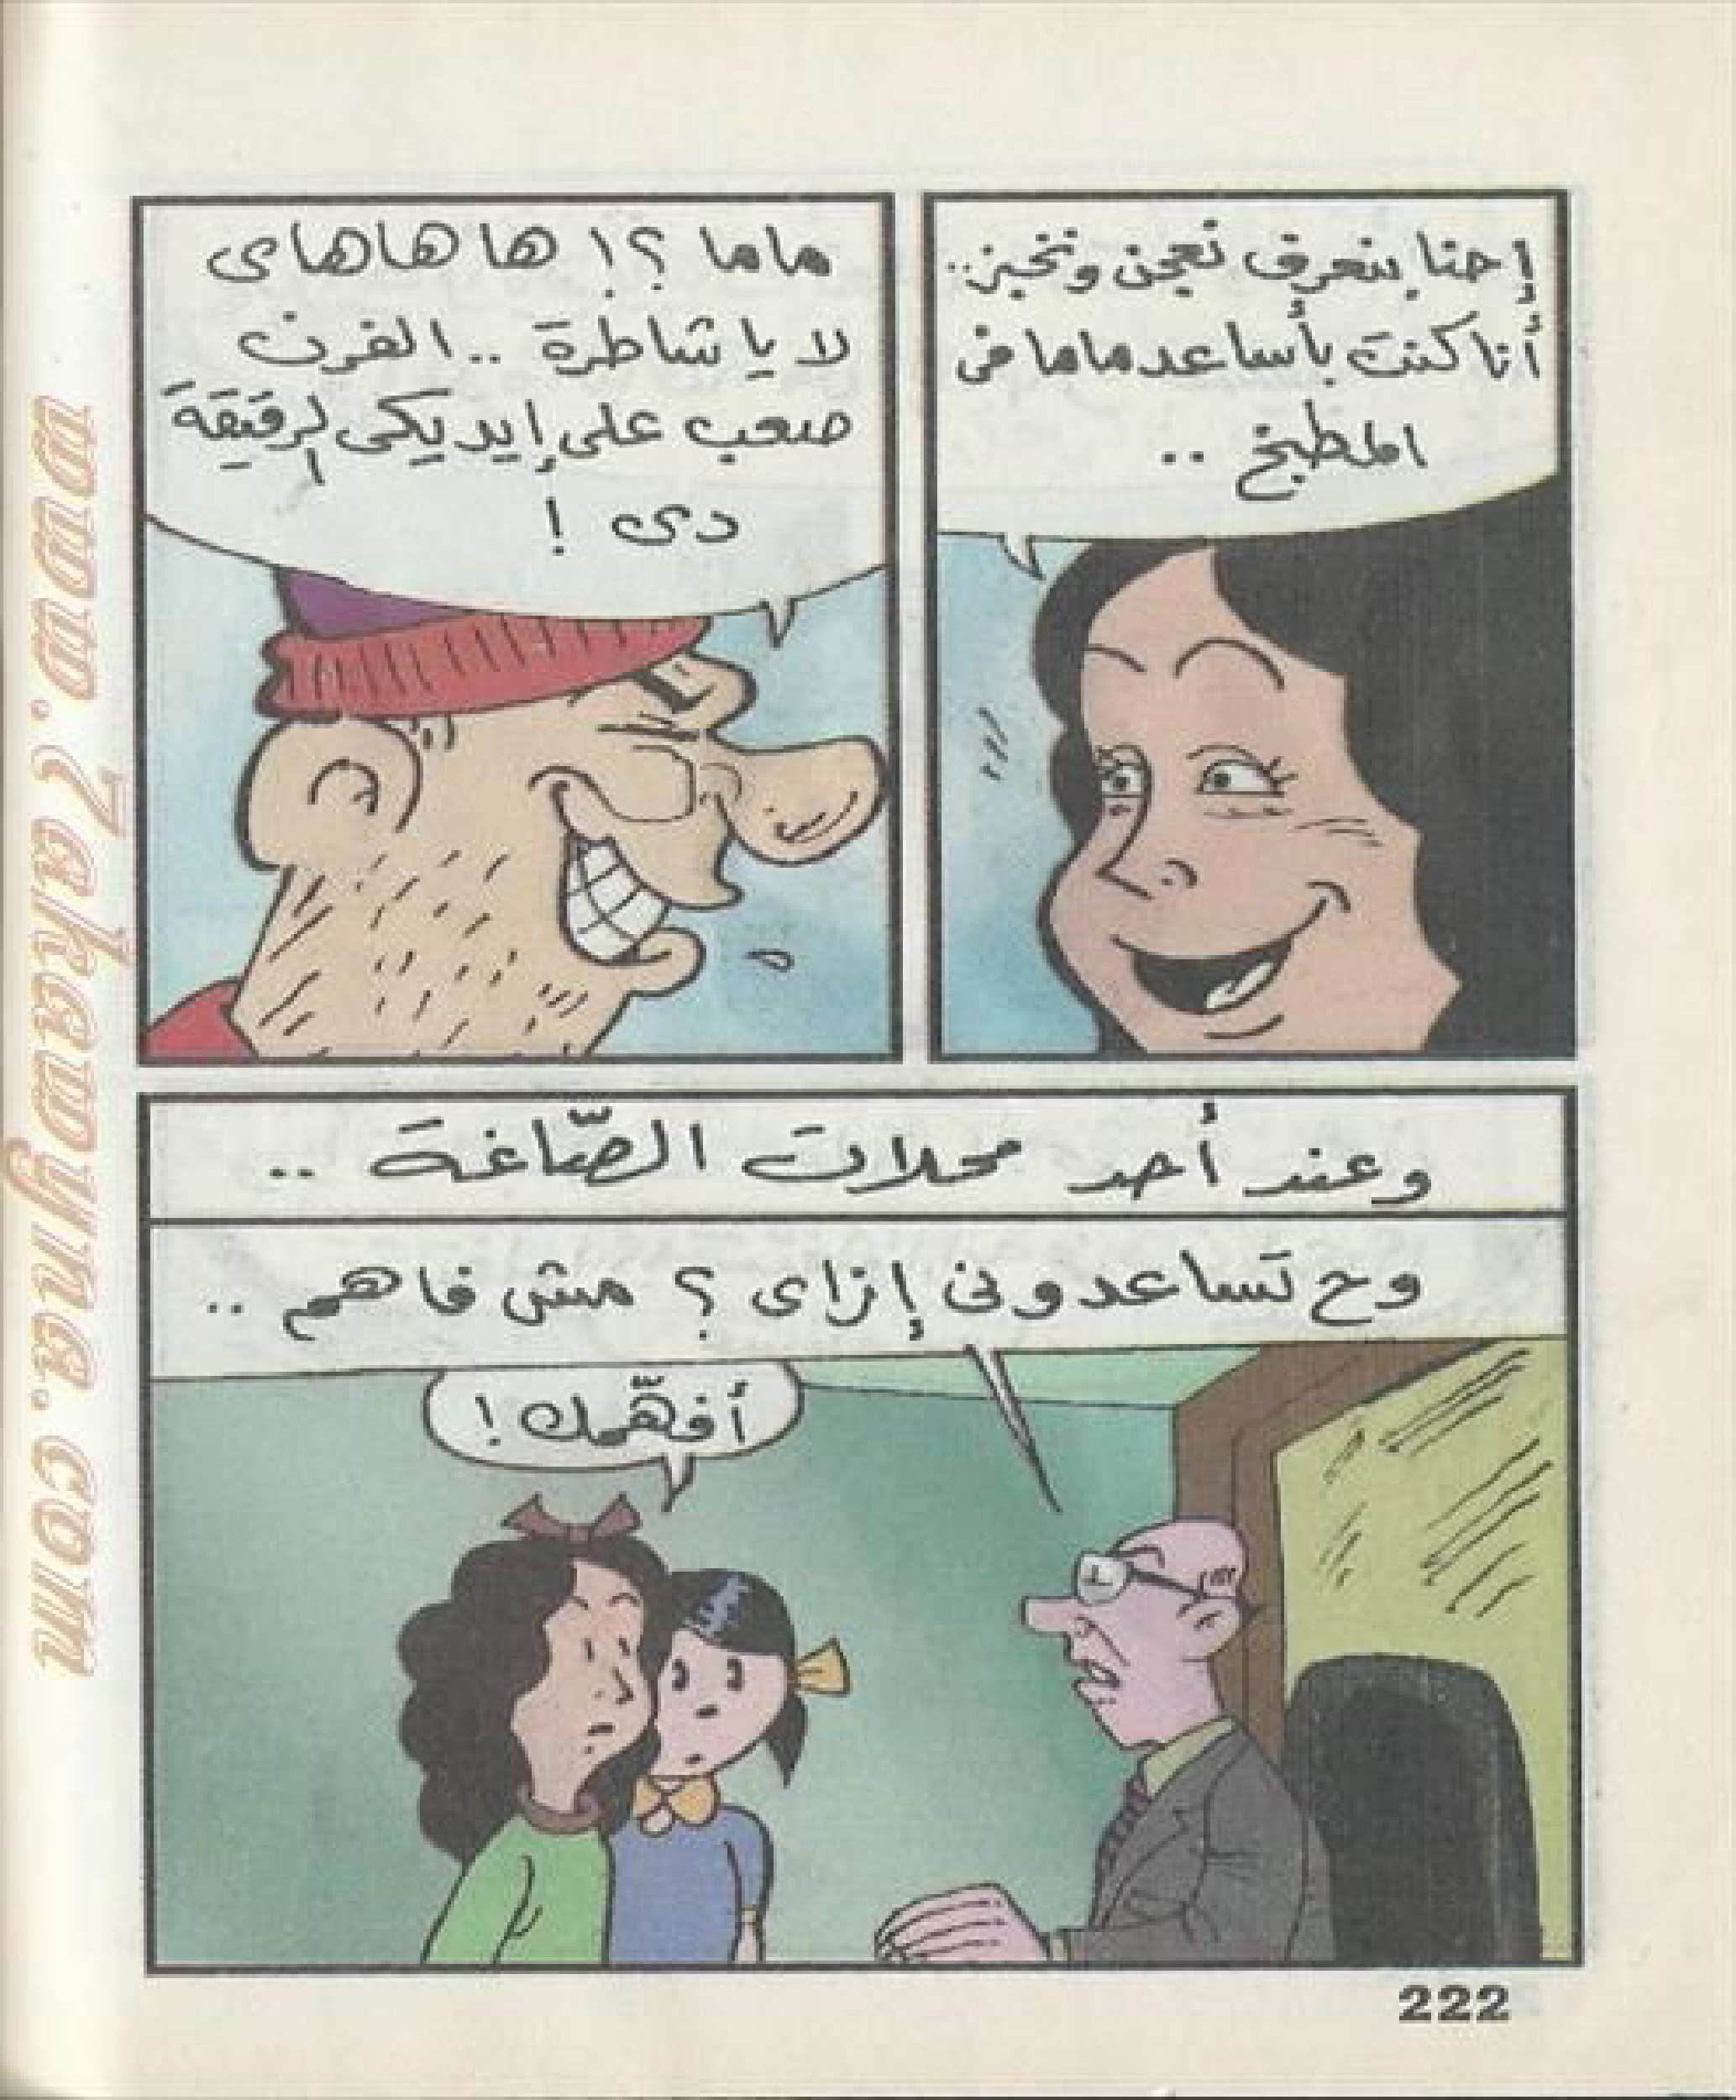 إحنا بنعرف نعجن ونخبز..
أنا كنت بأساعد ماما فى
المطبخ ..
ماما ؟! ها هاهاى
لا يا شاطرة .. الفرن
صعب على إيديكى الرقيقة
دى !
وعند أحد محلات الصّاغة ..
وح تساعدونى إزاى ؟ مش فاهم ..
أفهّمك !
222
www.7akawyna.com